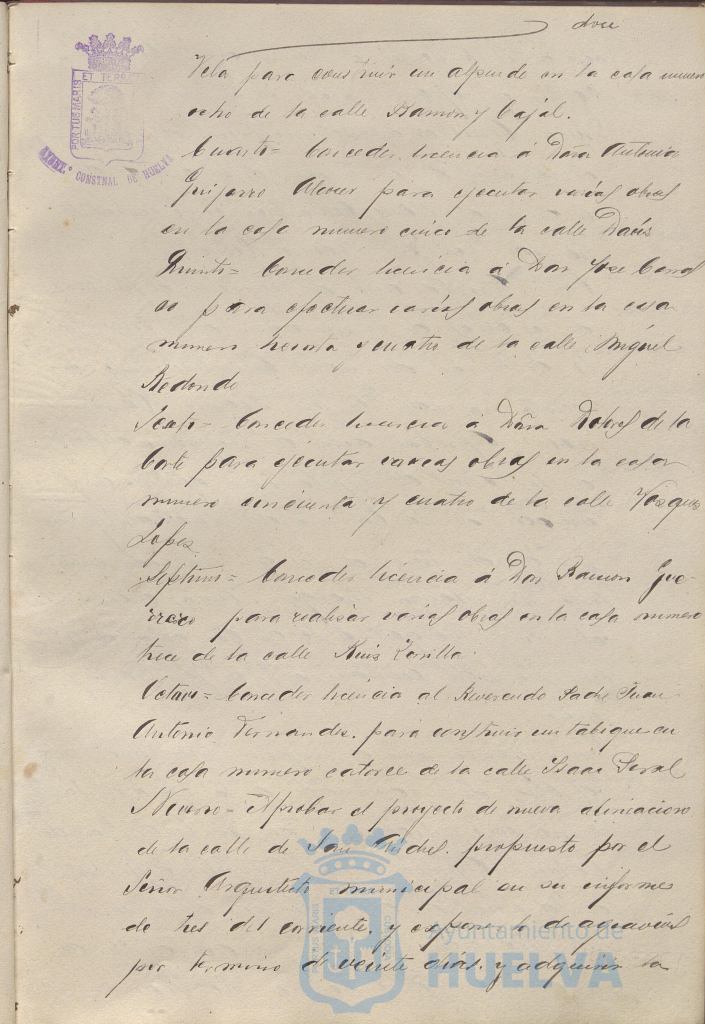 doce
Vela para construir un alpende en la casa numero
ocho de la calle Ramon y Cajal.
Cuarto = Conceder licencia á Doña Antonia
Guijarro para ejecutar varias obras
en la casa numero cinco de la calle Daois
Quinto = Conceder licencia á Don Jose Carras
co para efectuar varias obras en la casa
numero y cuatro de la calle Miguel
Redondo
Sexto = Conceder licencia á Doña Dolores de la
Corte para ejecutar varias obras en la casa
numero cincuenta y cuatro de la calle Vazquez
Lopez.
Septimo = Conceder licencia á Don Ramon Gue-
rrero para realizar varias obras en la casa numero
trece de la calle Ruiz Zorrilla.
Octavo = Conceder licencia al Reverendo Padre Juan
Antonio Fernandez. para construir un tabique en
la casa numero catorce de la calle Isaac Peral
Noveno = Aprobar el proyecto de nueva alineacion
de la calle de San propuesto por el
Señor Arquitecto municipal en su informe
de tres del corriente, y de agravios
por termino de veinte dias. y adquirir la
PORTUS MARIS
ET TERRAE
AYUNT. CONSTNAL DE HUELVA
Ayuntamiento de
HUELVA